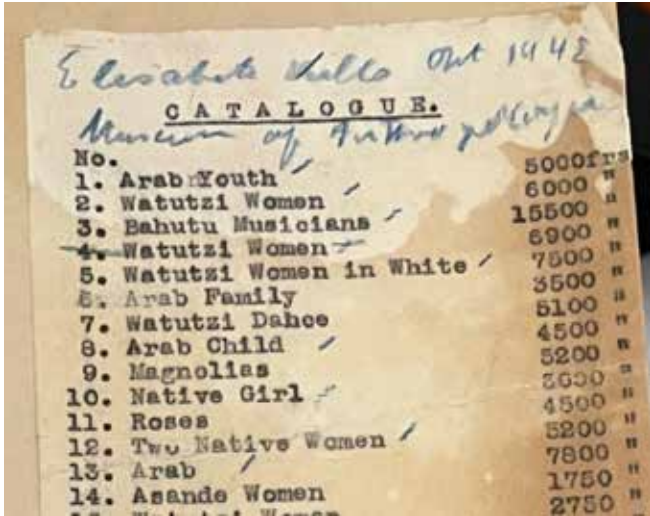 CATALOGUE.
Museum of
No.
1. Arab Youth 5000frs
2. Watutzi Women 6000 "
3. Bahutu Musicians 15500 "
4. Watutzi Women 6900 "
5. Watutzi Women in White 7500 "
6. Arab Family 3500 "
7. Watutzi Dahce 5100 "
8. Arab Child 4500 "
9. Magnolias 5200 "
10. Native Girl 3600 "
11. Roses 4500 "
12. Two Native Women 5200 "
13. Arab 7800 "
14. Asande Women 1750 "
15. Watutzi Women 2750 "